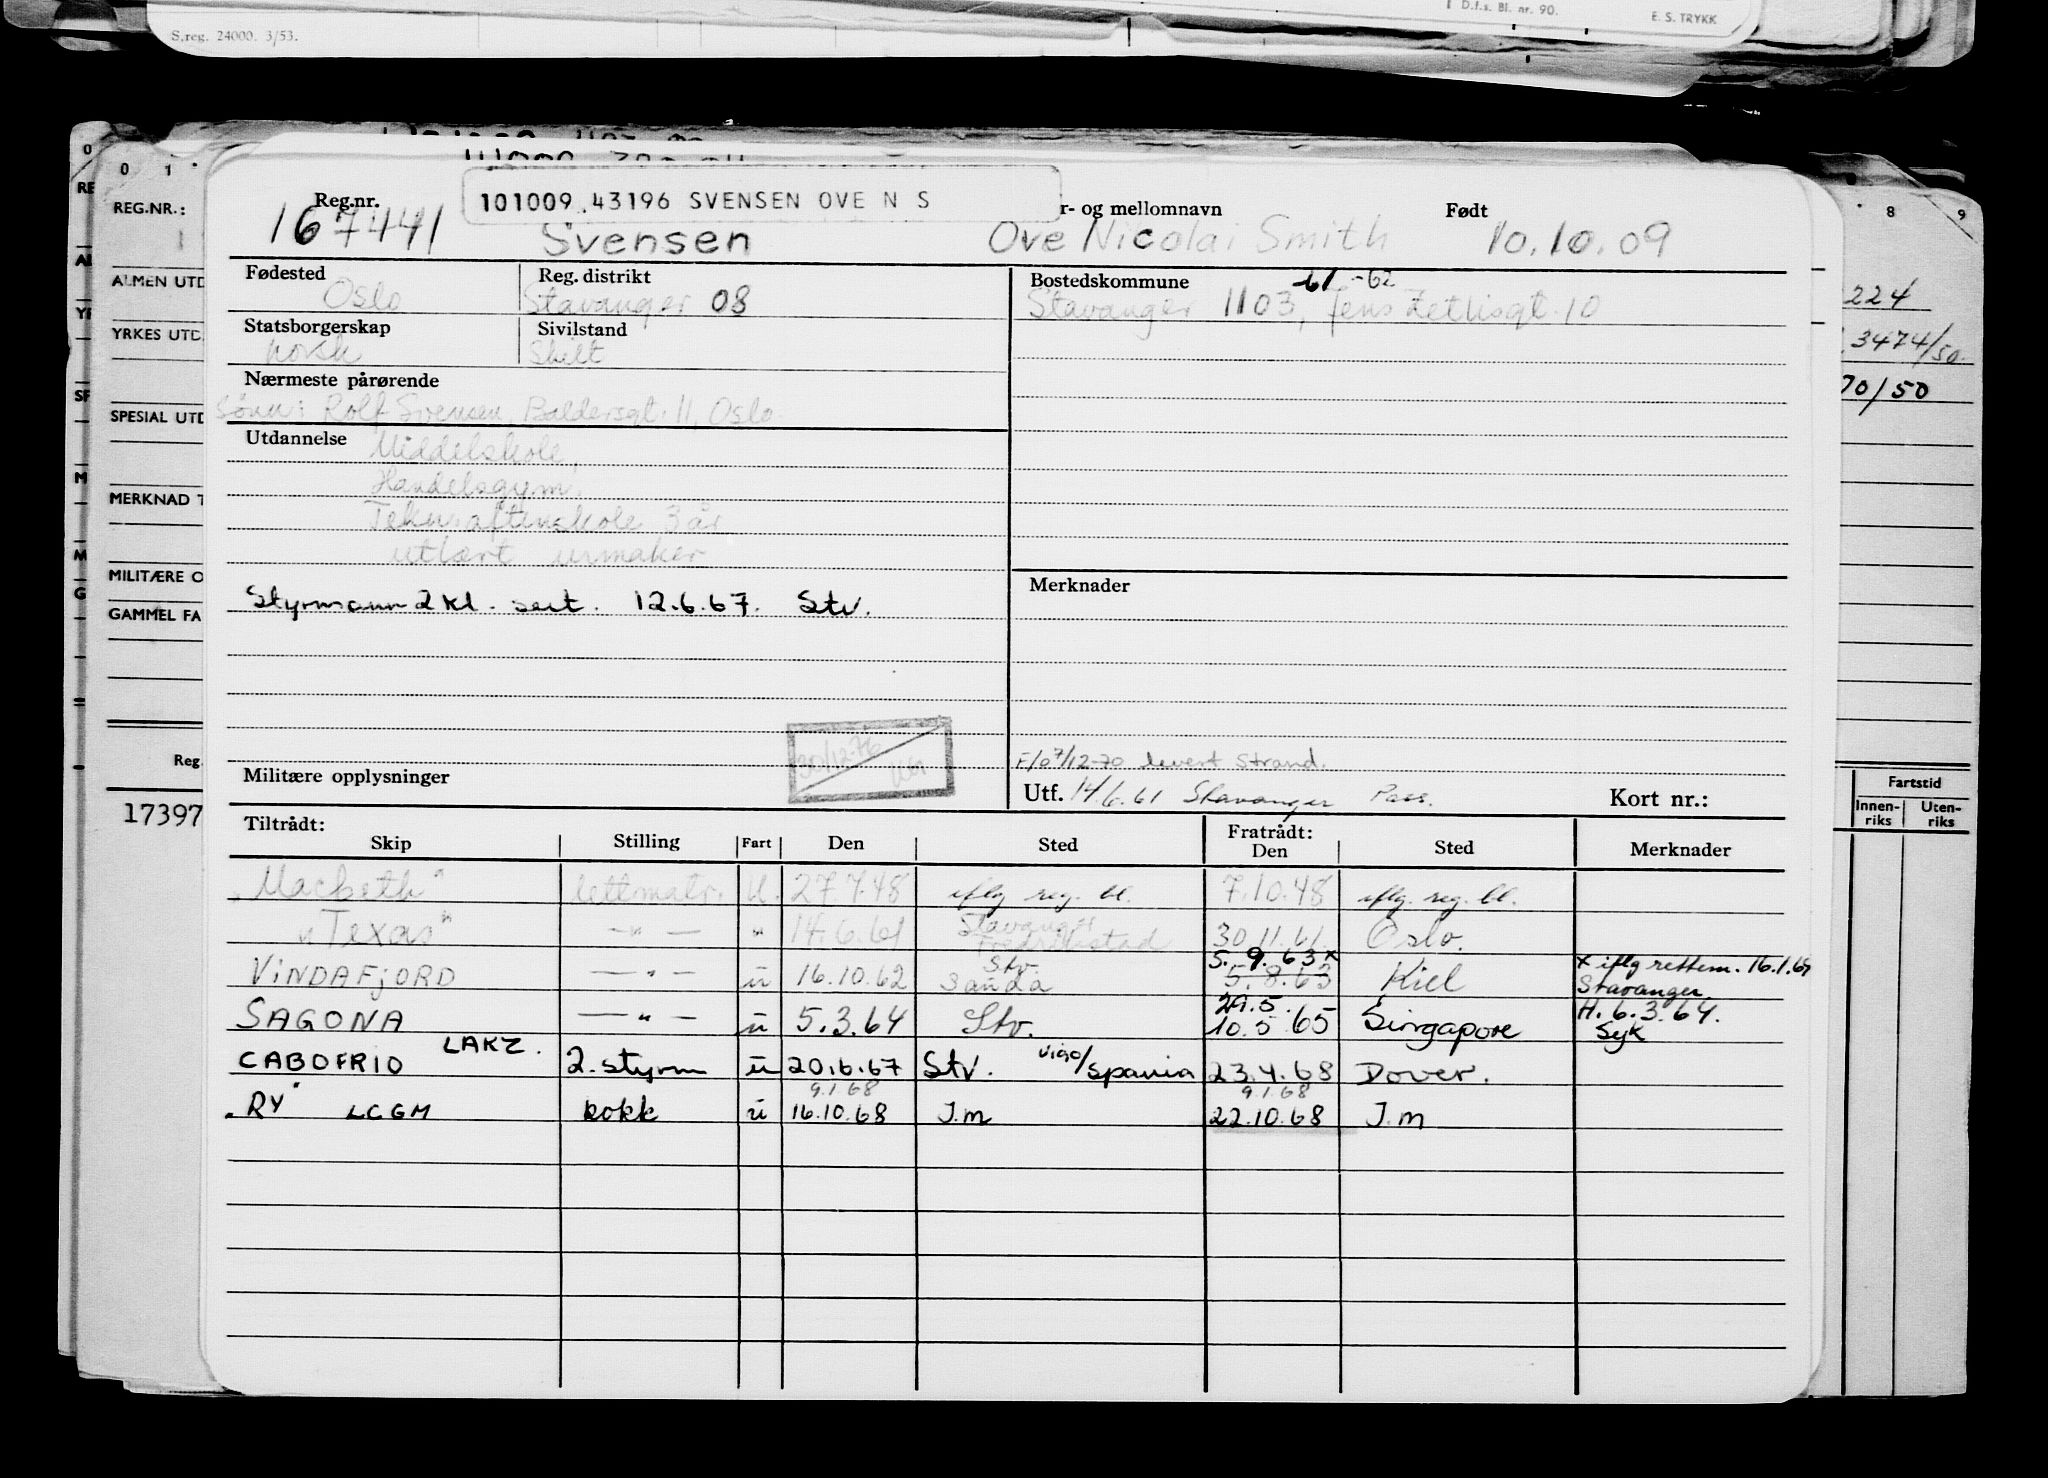 S.reg. 24000. 3/53.
D.f.s. Bl. nr. 90.
E. S. TRYKK
0 1
8 9
REG.NR.:
ALMEN UTD
YRKES UTD.
SPESIAL UTD
MERKNAD T
MILITÆRE O
GAMMEL FA
Reg.
17397
224
3474/50.
70/50
Fartstid
Innen-riks Uten-riks
Reg.nr. 101009 43196 SVENSEN OVE N S r- og mellomnavn Født
167441 Svensen Ove Nicolai Smith 10.10.09
Fødested Reg. distrikt Bostedskommune 61-62
Oslo Stavanger 08 Stavanger 1103, Jens Zetlisgt. 10
Statsborgerskap Sivilstand
norsk Skilt
Nærmeste pårørende
Sønn: Rolf Svensen Baldersgt. 11, Oslo.
Utdannelse Middelskole,
Handelsgym.
Tekn. aftenskole 3 år
utlært urmaker
Merknader
Styrmann 2 kl. sert. 12.6.67. Stv.
30/12-76
F/07/12-70 levert Strand.
Militære opplysninger
Utf. 14/6.61 Stavanger Pass. Kort nr.:
Tiltrådt: Fratrådt:
Skip Stilling Fart Den Sted Den Sted Merknader
"Macbeth" lettmatr. U. 27.7.48 iflg reg. bl. 7.10.48 iflg. reg. bl.
"Texas" — " — " 14.6.61 Stavanger Fredrikstad 30.11.61. Oslo.
Stv. 5.9.63 x x iflg rettem. 16.1.64
VINDAFJORD — " — ü 16.10.62 Sanda 5.8.63 Kiel Stavanger.
29.5. H. 6.3.64.
SAGONA — " — ü 5.3.64 Stv. 10.5.65 Singapore Syk
CABOFRIO LAKZ. 2. styrm ü 20.6.67 Stv. Vigo/Spania 23.4.68 Dover.
9.1.68 9.1.68
"RY" LCGM kokk ü 16.10.68 J.m 22.10.68 J.m